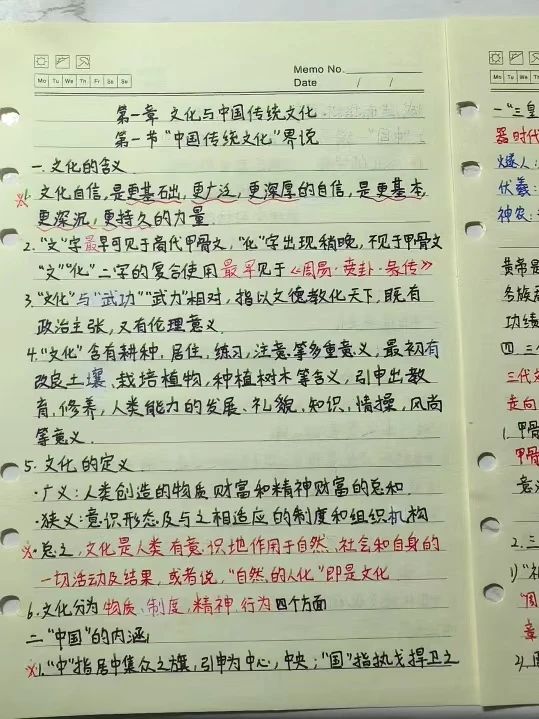 Memo No.
Mo Tu We Th Fr Sa Su
Date / /
第一章 文化与中国传统文化
第一节 "中国传统文化"界说
一.文化的含义
※1.文化自信,是更基础,更广泛,更深厚的自信,是更基本,
更深沉,更持久的力量
2."文"字最早可见于商代甲骨文,"化"字出现稍晚,不见于甲骨文
"文""化"二字的复合使用最早见于《周易·贲卦·彖传》
3."文化"与"武功""武力"相对,指以文德教化天下,既有
政治主张,又有伦理意义
4."文化"含有耕种,居住,练习,注意等多重意义,最初有
改良土壤、栽培植物,种植树木等含义,引申出教
育,修养,人类能力的发展、礼貌,知识,情操,风尚
等意义
5.文化的定义
·广义:人类创造的物质财富和精神财富的总和
·狭义:意识形态及与之相适应的制度和组织机构
※·总之,文化是人类有意识地作用于自然、社会和自身的
一切活动及结果,或者说,"自然的人化"即是文化
6.文化分为物质、制度,精神,行为四个方面
二."中国"的内涵
※1."中"指居中集众之旗,引申为中心,中央;"国"指执戈捍卫之
Mo Tu We Th
一"三皇
器时代
燧人:
伏羲:
神农:
黄帝是
多族
功绩
四 三
三代文
走向
1.甲骨
甲骨
意义
2.三
1)"礼
"国
章
2)